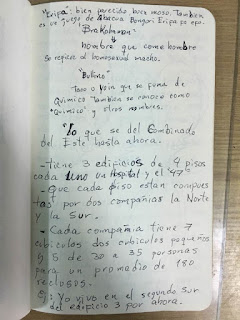 "Eripa": bien parecido buen moso. Tambien
es un juego de Abacua Bongori Eripa es epo.
Brakaman
nombre que come hombre
Se refiere al homosexual macho.
"Butino"
Taso o vein que se fuma de
Quimico Tambien se conoce como
"Quimico" y otros nombres.
"Lo que se del Combinado
del Este hasta ahora.
- tiene 3 edificios de 4 pisos
cada uno un hospital y el "47"
- Que cada piso estan compues
tas por dos compañias la Norte
y la Sur.
- Cada compañia tiene 7
cubiculos dos cubiculos pequeños
y 5 de 30 a 35 personas
para un promedio de 180
reclusos.
Yo vivo en el segundo Sur
del edificio 3 por ahora.